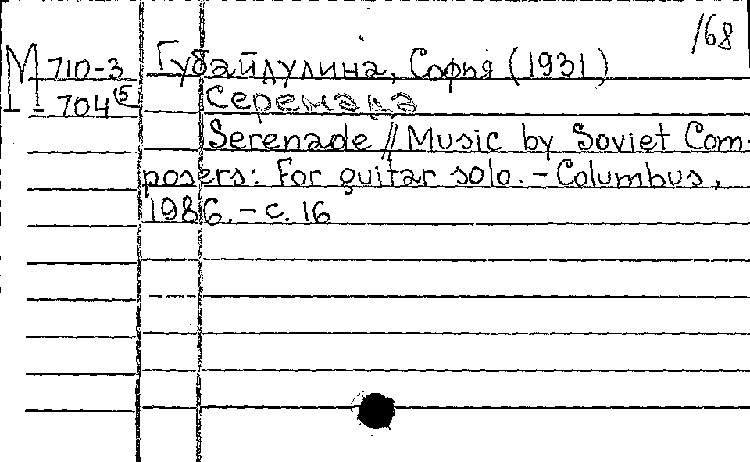 /68
М 710-3 Губайдулина, Софья (1931)
704⁽⁵ Серенада
Serenade // Music by Soviet Com-
posers: For guitar solo. - Columbus,
1986. - с. 16